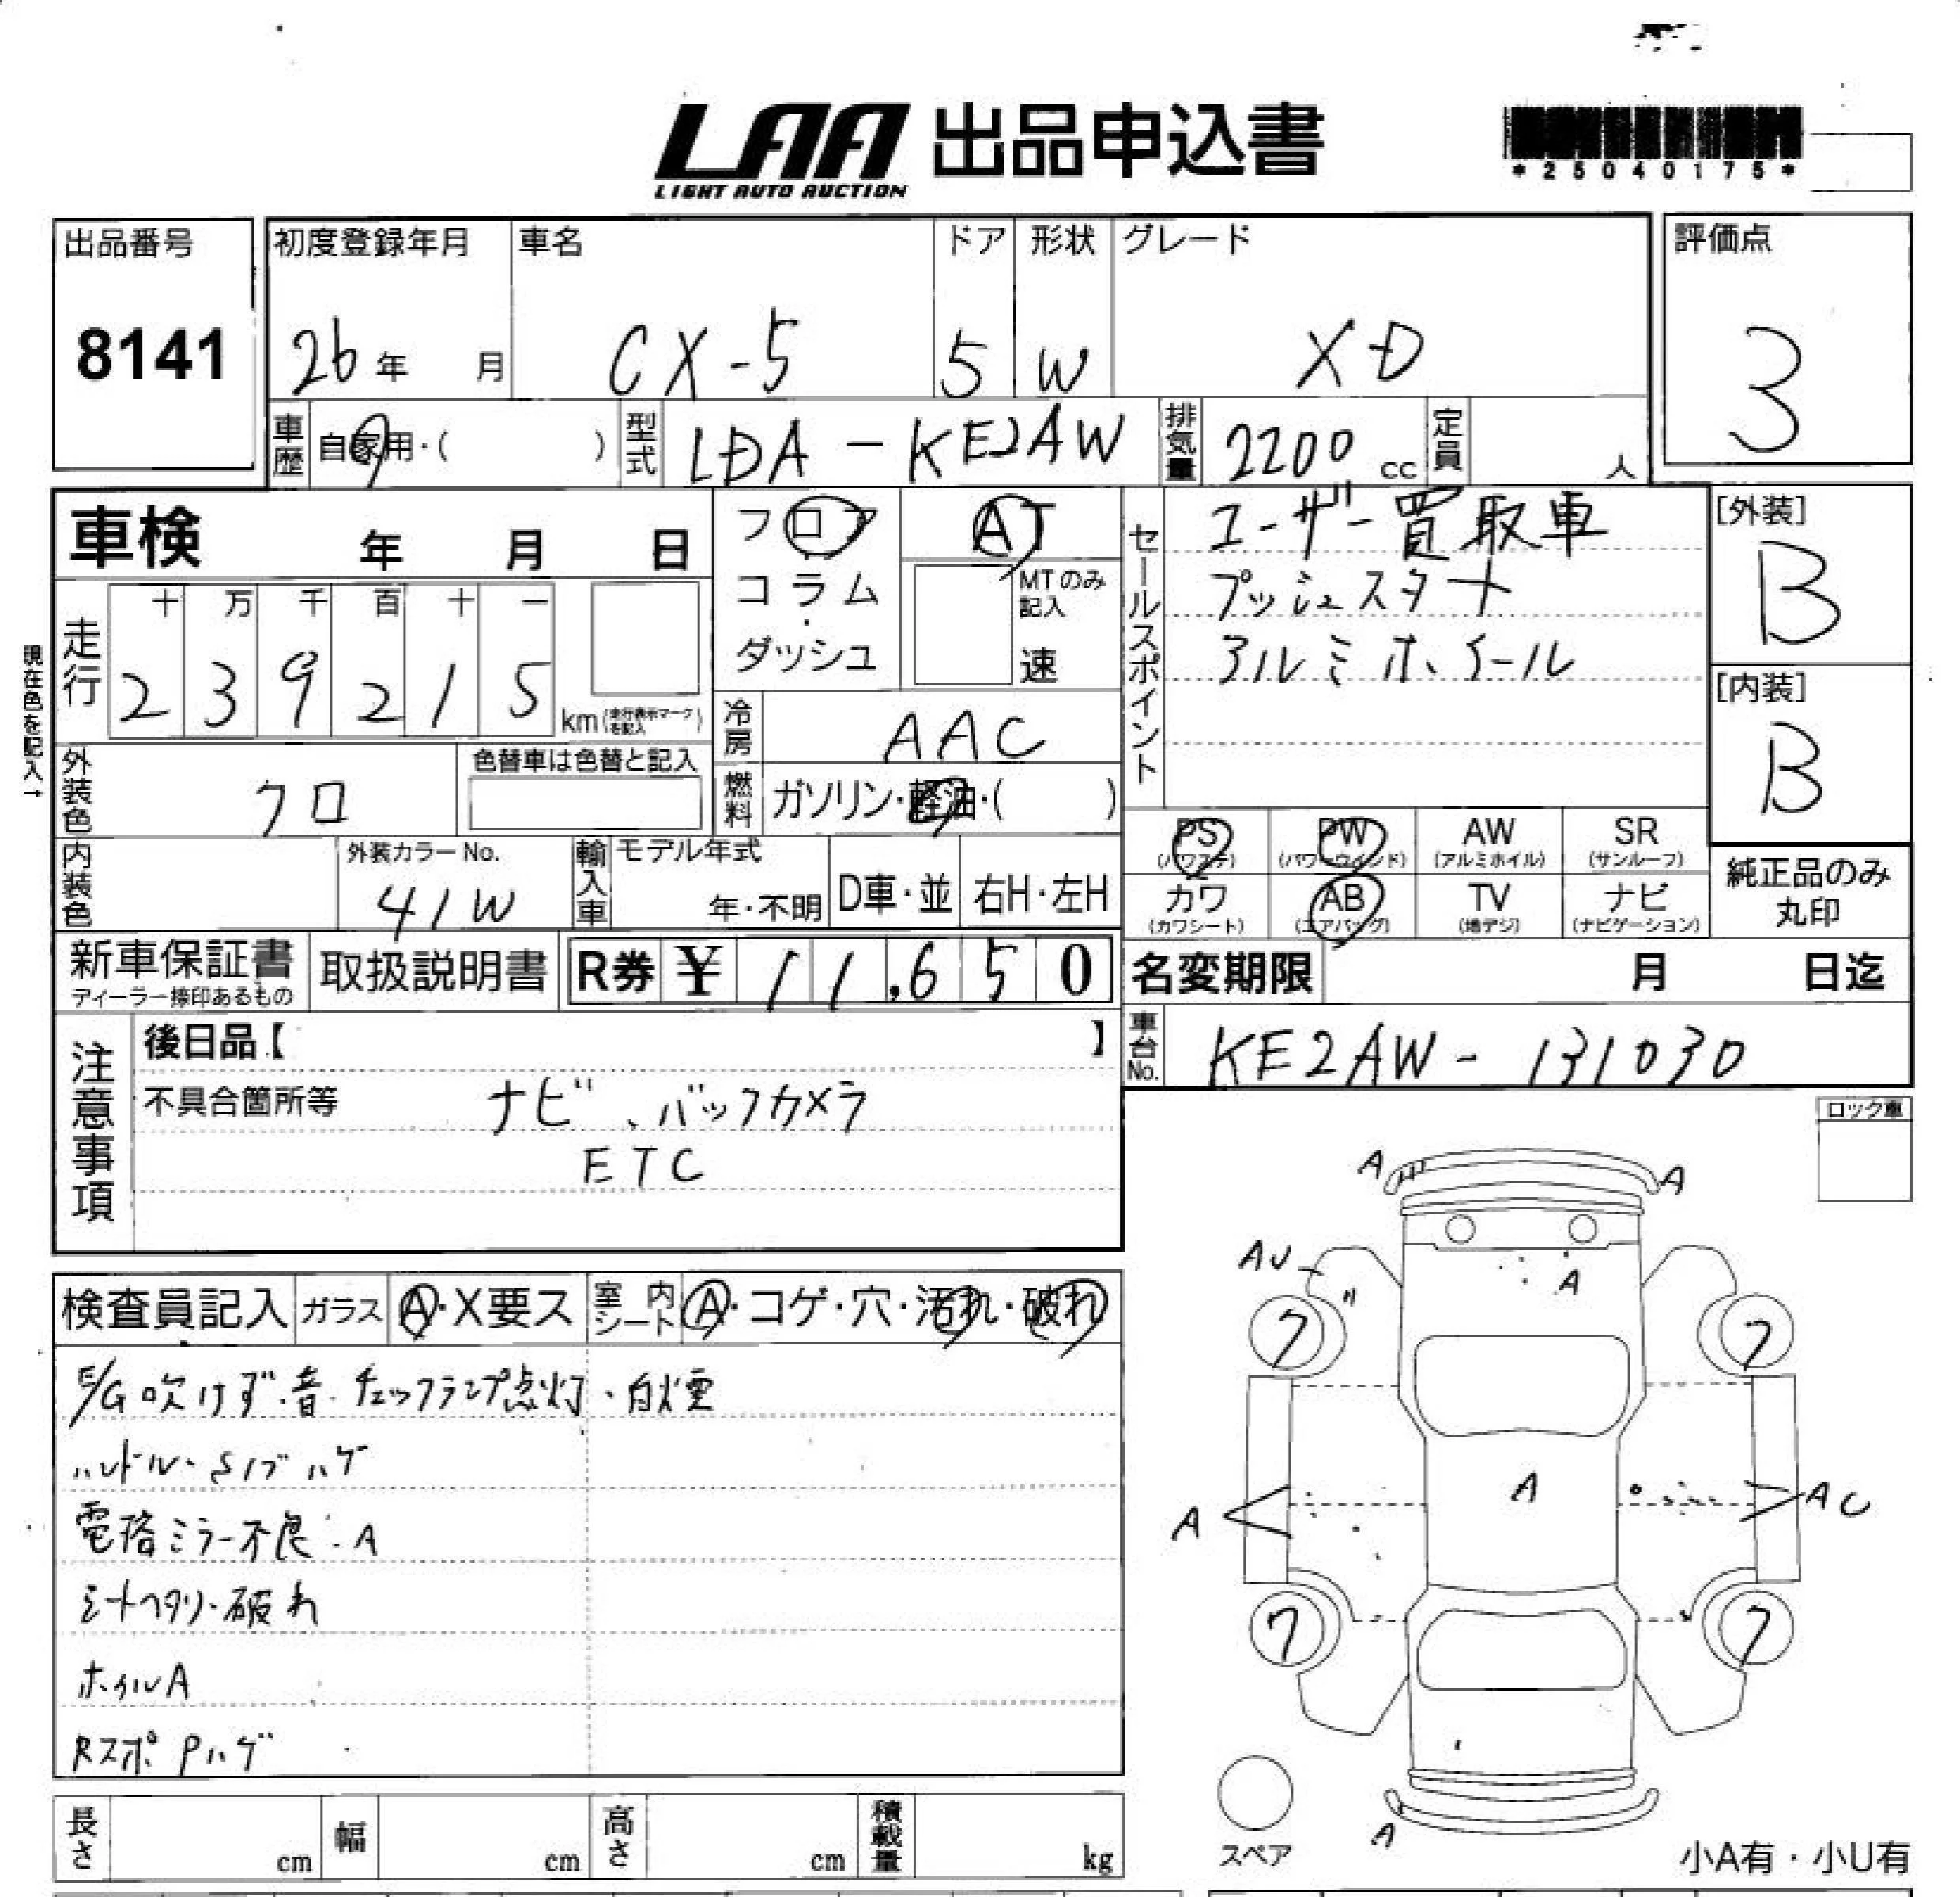 LAA 出品申込書
LIGHT AUTO AUCTION
*25040175*
出品番号
8141
初度登録年月
26年 月
車名
CX-5
ドア
5
形状
W
グレード
XD
評価点
3
車歴 自家用・( )
型式 LDA-KE2AW
排気量 2200 cc
定員 人
車検 年 月 日
フロア・コラム・ダッシュ
AT
MTのみ記入
速
現在色を記入→
走行
十 万 千 百 十 一
2 3 9 2 1 5 km(走行表示マークを記入)
冷房 AAC
燃料 ガソリン・軽油・( )
外装色 クロ
色替車は色替と記入
内装色
外装カラーNo.
41W
輸入車
モデル年式
年・不明
D車・並
右H・左H
セールスポイント
ユーザー買取車
プッシュスタート
アルミホイール
[外装]
B
[内装]
B
PS (パワステ)
PW (パワーウィンド)
AW (アルミホイル)
SR (サンルーフ)
カワ (カワシート)
AB (エアバッグ)
TV (地デジ)
ナビ (ナビゲーション)
純正品のみ丸印
新車保証書
ディーラー捺印あるもの
取扱説明書
R券 ¥ 11,650
名変期限 月 日迄
車台No. KE2AW-131030
注意事項
後日品【 】
不具合箇所等
ナビ、バックカメラ
ETC
ロック車
検査員記入
ガラス A・X要ス
室内シート A・コゲ・穴・汚れ・破れ
E/G吹けず・音・チェックランプ点灯・白煙
ハンドル・ハゲ
電格ミラー不良・A
シートヘタリ・破れ
ホイルA
RスポPハゲ
A
A
AU
A
フ
フ
A
A
AU
フ
フ
A
スペア
小A有・小U有
長さ cm
幅 cm
高さ cm
積載量 kg